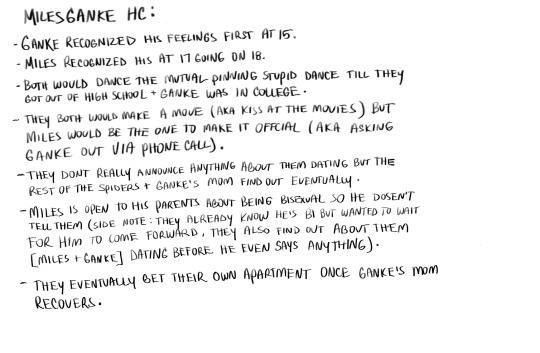 MILESGANKE HC:
- GANKE RECOGNIZED HIS FEELINGS FIRST AT 15.
- MILES RECOGNIZED HIS AT 17 GOING ON 18.
- BOTH WOULD DANCE THE MUTUAL PINNING STUPID DANCE TILL THEY
GOT OUT OF HIGH SCHOOL + GANKE WAS IN COLLEGE.
- THEY BOTH WOULD MAKE A MOVE (AKA KISS AT THE MOVIES) BUT
MILES WOULD BE THE ONE TO MAKE IT OFFCIAL (AKA ASKING
GANKE OUT VIA PHONE CALL).
- THEY DONT REALLY ANNOUNCE ANYTHING ABOUT THEM DATING BUT THE
REST OF THE SPIDERS + GANKE'S MOM FIND OUT EVENTUALLY.
- MILES IS OPEN TO HIS PARENTS ABOUT BEING BISEXUAL SO HE DOSEN'T
TELL THEM (SIDE NOTE: THEY ALREADY KNOW HE'S BI BUT WANTED TO WAIT
FOR HIM TO COME FORWARD, THEY ALSO FIND OUT ABOUT THEM
[MILES + GANKE] DATING BEFORE HE EVEN SAYS ANYTHING).
- THEY EVENTUALLY GET THEIR OWN APARTMENT ONCE GANKE'S MOM
RECOVERS.